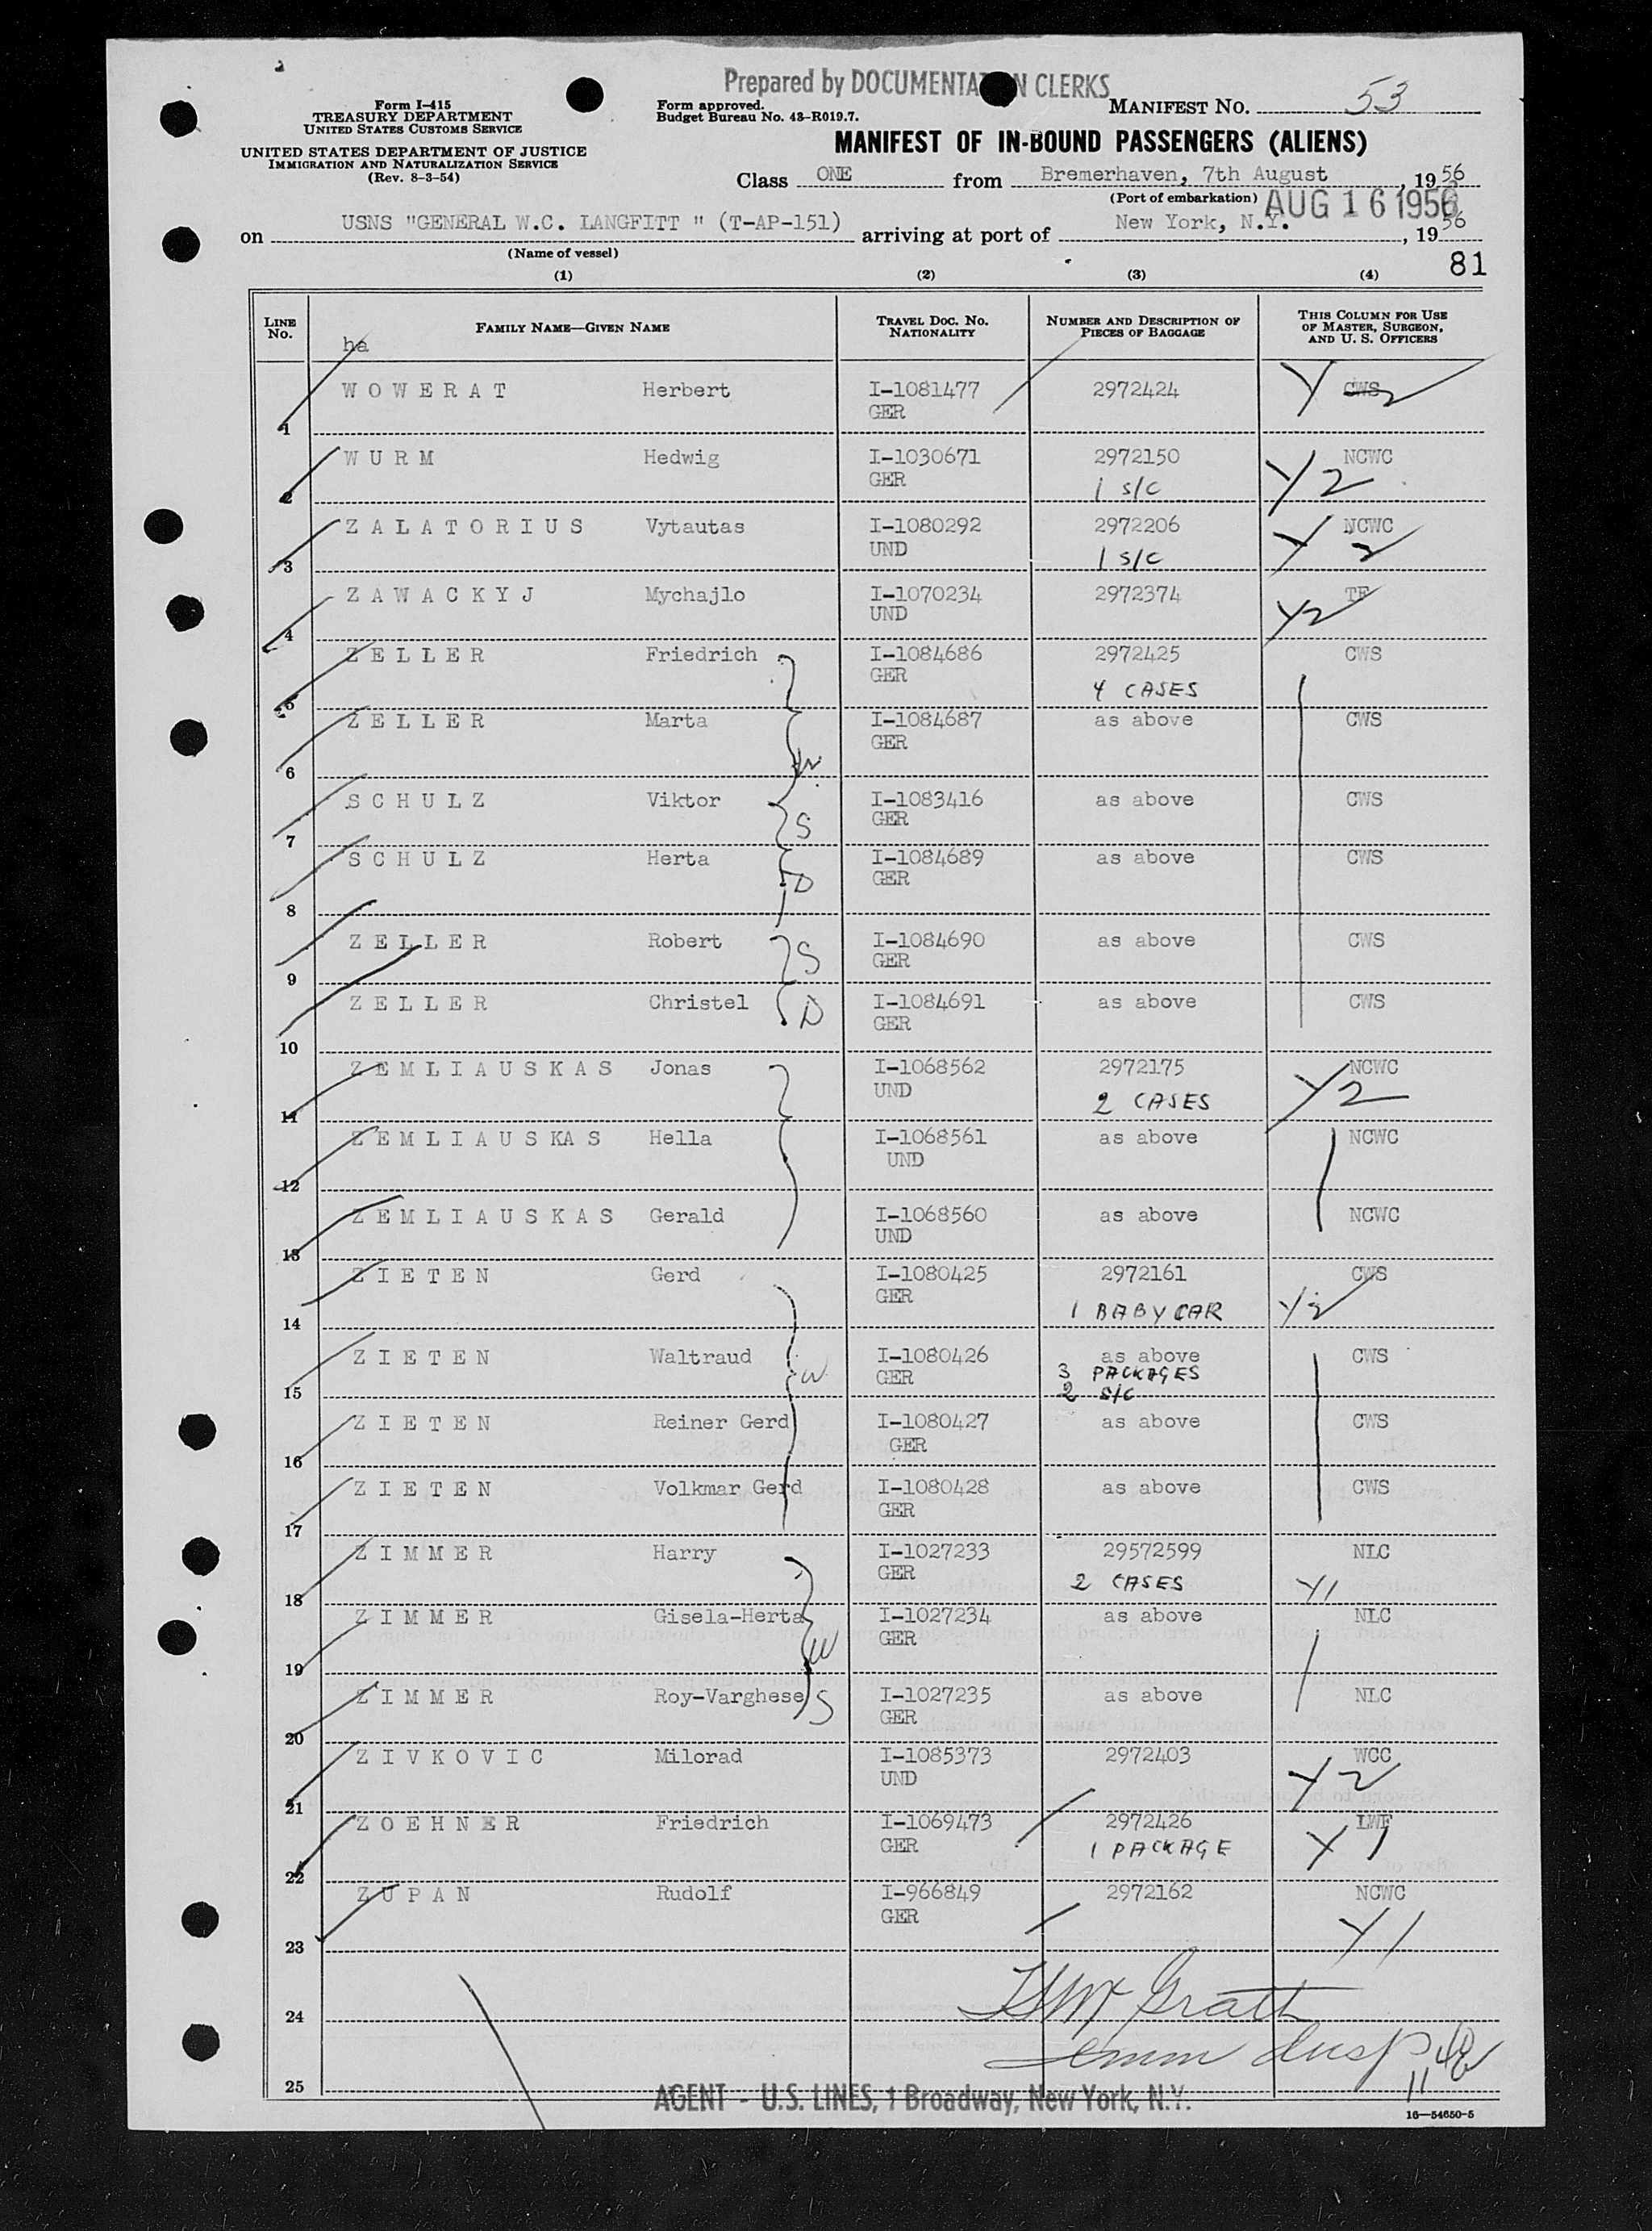 Prepared by DOCUMENTATION CLERKS
Form I-415
TREASURY DEPARTMENT
UNITED STATES CUSTOMS SERVICE
UNITED STATES DEPARTMENT OF JUSTICE
IMMIGRATION AND NATURALIZATION SERVICE
(Rev. 8-3-54)
Form approved.
Budget Bureau No. 43-R019.7.
MANIFEST NO. 53
MANIFEST OF IN-BOUND PASSENGERS (ALIENS)
Class ONE from Bremerhaven, 7th August, 1956
(Port of embarkation) AUG 16 1956
on USNS "GENERAL W.C. LANGFITT " (T-AP-151) arriving at port of New York, N.Y., 1956
(Name of vessel)
81
(1) (2) (3) (4)
LINE NO. FAMILY NAME—GIVEN NAME TRAVEL DOC. NO. NATIONALITY NUMBER AND DESCRIPTION OF PIECES OF BAGGAGE THIS COLUMN FOR USE OF MASTER, SURGEON, AND U. S. OFFICERS
ha
1 WOWERAT Herbert I-1081477 GER 2972424 Y CWS 2
2 WURM Hedwig I-1030671 GER 2972150 1 S/C NCWC Y2
3 ZALATORIUS Vytautas I-1080292 UND 2972206 1 S/C NCWC Y2
4 ZAWACKYJ Mychajlo I-1070234 UND 2972374 TF Y2
5 ZELLER Friedrich I-1084686 GER 2972425 4 CASES CWS
6 ZELLER Marta W I-1084687 GER as above CWS
7 SCHULZ Viktor S I-1083416 GER as above CWS
8 SCHULZ Herta D I-1084689 GER as above CWS
9 ZELLER Robert S I-1084690 GER as above CWS
10 ZELLER Christel D I-1084691 GER as above CWS
11 ZEMLIAUSKAS Jonas I-1068562 UND 2972175 2 CASES NCWC Y2
12 ZEMLIAUSKAS Hella I-1068561 UND as above NCWC
13 ZEMLIAUSKAS Gerald I-1068560 UND as above NCWC
14 ZIETEN Gerd I-1080425 GER 2972161 1 BABY CAR CWS Y2
15 ZIETEN Waltraud W I-1080426 GER as above 3 PACKAGES 2 S/C CWS
16 ZIETEN Reiner Gerd I-1080427 GER as above CWS
17 ZIETEN Volkmar Gerd I-1080428 GER as above CWS
18 ZIMMER Harry I-1027233 GER 29572599 2 CASES NLC Y1
19 ZIMMER Gisela-Herta W I-1027234 GER as above NLC
20 ZIMMER Roy-Varghese S I-1027235 GER as above NLC
21 ZIVKOVIC Milorad I-1085373 UND 2972403 WCC Y2
22 ZOEHNER Friedrich I-1069473 GER 2972426 1 PACKAGE LWF Y1
23 ZUPAN Rudolf I-966849 GER 2972162 NCWC Y1
24
25
McGrath
Imm Insp
AGENT - U.S. LINES, 1 Broadway, New York, N.Y.
16—54650-5